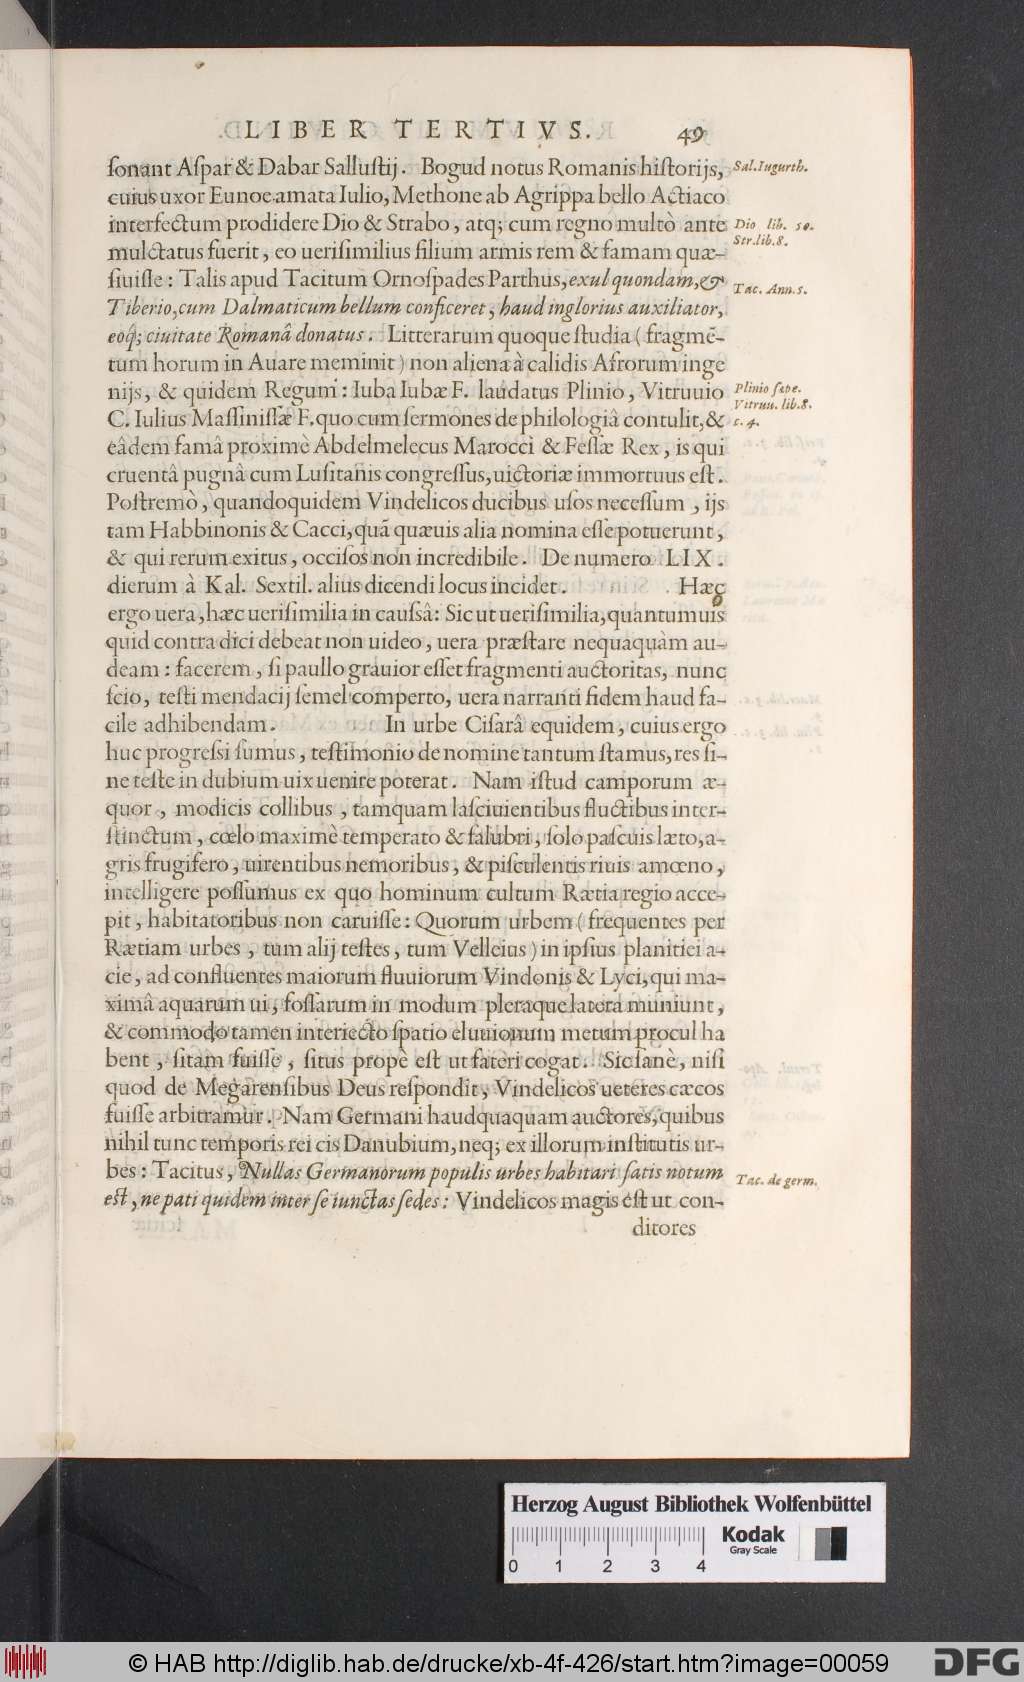 LIBER TERTIVS. 49
ſonant Aſpar & Dabar Salluſtij. Bogud notus Romanis hiſtorijs,
Sal. Iugurth.
cuius uxor Eunoe amata Iulio, Methone ab Agrippa bello Actiaco
interfectum prodidere Dio & Strabo, atq; cum regno multò ante
Dio lib. 50.
mulctatus fuerit, eo ueriſimilius filium armis rem & famam quæ-
Str. lib. 8.
ſiuiſſe: Talis apud Tacitum Ornoſpades Parthus, exul quondam, &
Tac. Ann. 5.
Tiberio, cum Dalmaticum bellum conficeret, haud inglorius auxiliator,
eoq́; ciuitate Romanâ donatus. Litterarum quoque ſtudia (fragmē-
tum horum in Auare meminit) non aliena à calidis Afrorum inge
nijs, & quidem Regum: Iuba Iubæ F. laudatus Plinio, Vitruuio
Plinio ſæpe.
Vitruu. lib. 8.
C. Iulius Maſſiniſſæ F. quo cum ſermones de philologiâ contulit, &
c. 4.
eâdem famâ proximè Abdelmelecus Marocci & Feſſæ Rex, is qui
cruentâ pugnâ cum Luſitanis congreſſus, uictoriæ immortuus eſt.
Poſtremò, quandoquidem Vindelicos ducibus uſos neceſſum, ijs
tam Habbinonis & Cacci, quā quæuis alia nomina eſſe potuerunt,
& qui rerum exitus, occiſos non incredibile. De numero LIX.
dierum à Kal. Sextil. alius dicendi locus incidet. Hæc
ergo uera, hæc ueriſimilia in cauſsâ: Sic ut ueriſimilia, quantumuis
quid contra dici debeat non uideo, uera præſtare nequaquàm au-
deam: facerem, ſi paullo grauior eſſet fragmenti auctoritas, nunc
ſcio, teſti mendacij ſemel comperto, uera narranti fidem haud fa-
cile adhibendam. In urbe Ciſarâ equidem, cuius ergo
huc progreſsi ſumus, teſtimonio de nomine tantum ſtamus, res ſi-
ne teſte in dubium uix uenire poterat. Nam iſtud camporum æ-
quor, modicis collibus, tamquam laſciuientibus fluctibus inter-
ſtinctum, cœlo maximè temperato & ſalubri, ſolo paſcuis læto, a-
gris frugifero, uirentibus nemoribus, & piſculentis riuis amœno,
intelligere poſſumus ex quo hominum cultum Rætia regio acce-
pit, habitatoribus non caruiſſe: Quorum urbem (frequentes per
Rætiam urbes, tum alij teſtes, tum Velleius) in ipſius planitiei a-
cie, ad confluentes maiorum fluuiorum Vindonis & Lyci, qui ma-
ximâ aquarum ui, foſſarum in modum pleraque latera muniunt,
& commodo tamen interiecto ſpatio eluuionum metum procul ha
bent, ſitam fuiſſe, ſitus propè eſt ut fateri cogat. Sic ſanè, niſi
quod de Megarenſibus Deus reſpondit, Vindelicos ueteres cæcos
fuiſſe arbitramur. Nam Germani haudquaquam auctores, quibus
nihil tunc temporis rei cis Danubium, neq; ex illorum inſtitutis ur-
bes: Tacitus, Nullas Germanorum populis urbes habitari ſatis notum
Tac. de germ.
eſt, ne pati quidem inter ſe iunctas ſedes: Vindelicos magis eſt ut con-
ditores
Herzog August Bibliothek Wolfenbüttel
Kodak
Gray Scale
0 1 2 3 4
© HAB http://diglib.hab.de/drucke/xb-4f-426/start.htm?image=00059
DFG